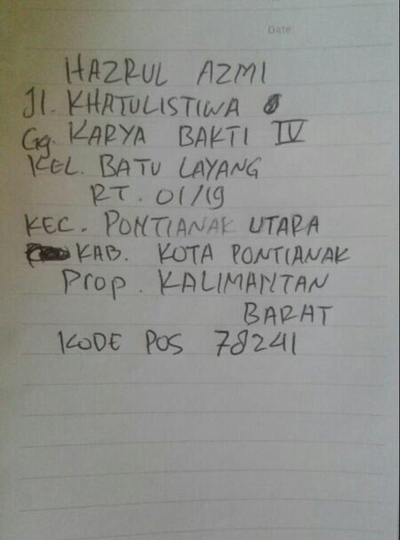 Date
HAZRUL AZMI
Jl. KHATULISTIWA
Gg. KARYA BAKTI IV
KEL. BATU LAYANG
RT. 01/19
KEC. PONTIANAK UTARA
KAB. KOTA PONTIANAK
Prop. KALIMANTAN
BARAT
KODE POS 78241